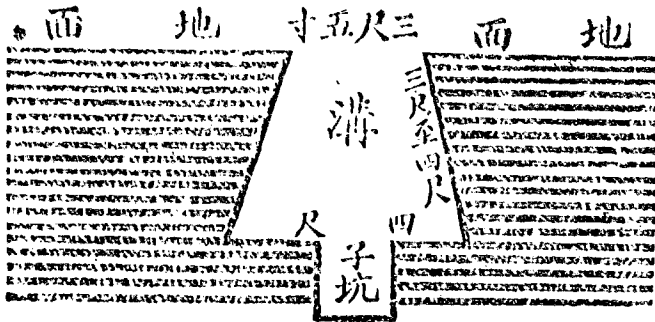 面地　寸五尺三　面地
溝
三尺至四尺
尺　四
子坑